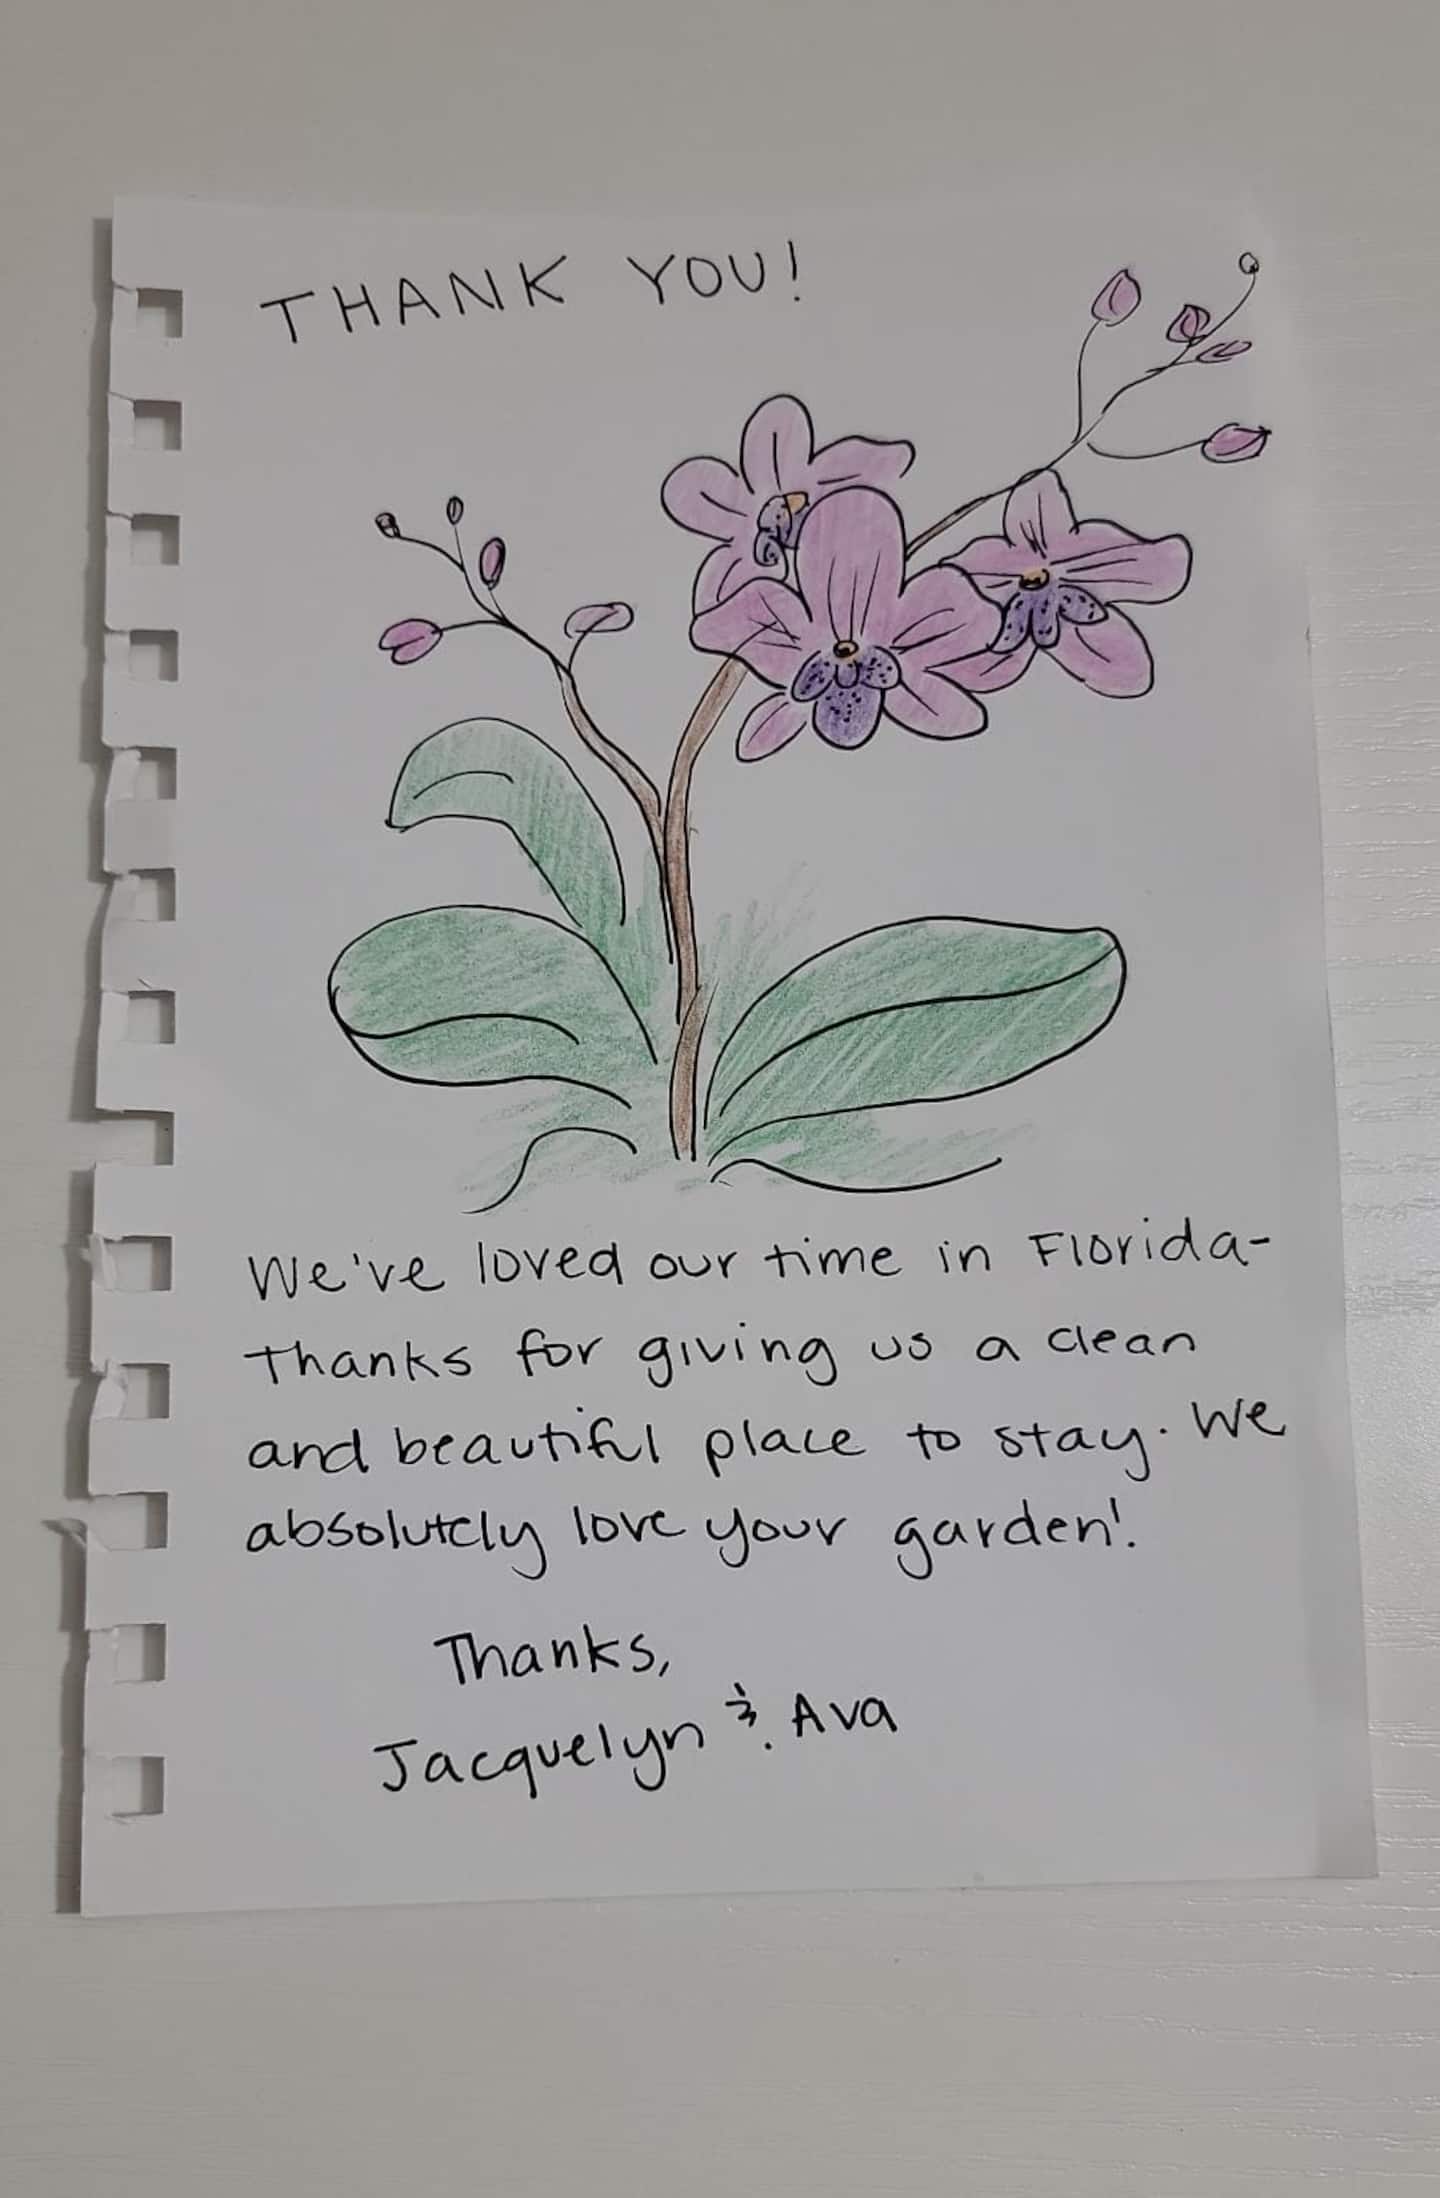 THANK YOU!
We've loved our time in Florida-
Thanks for giving us a clean
and beautiful place to stay. We
absolutely love your garden!
Thanks,
Jacquelyn & Ava